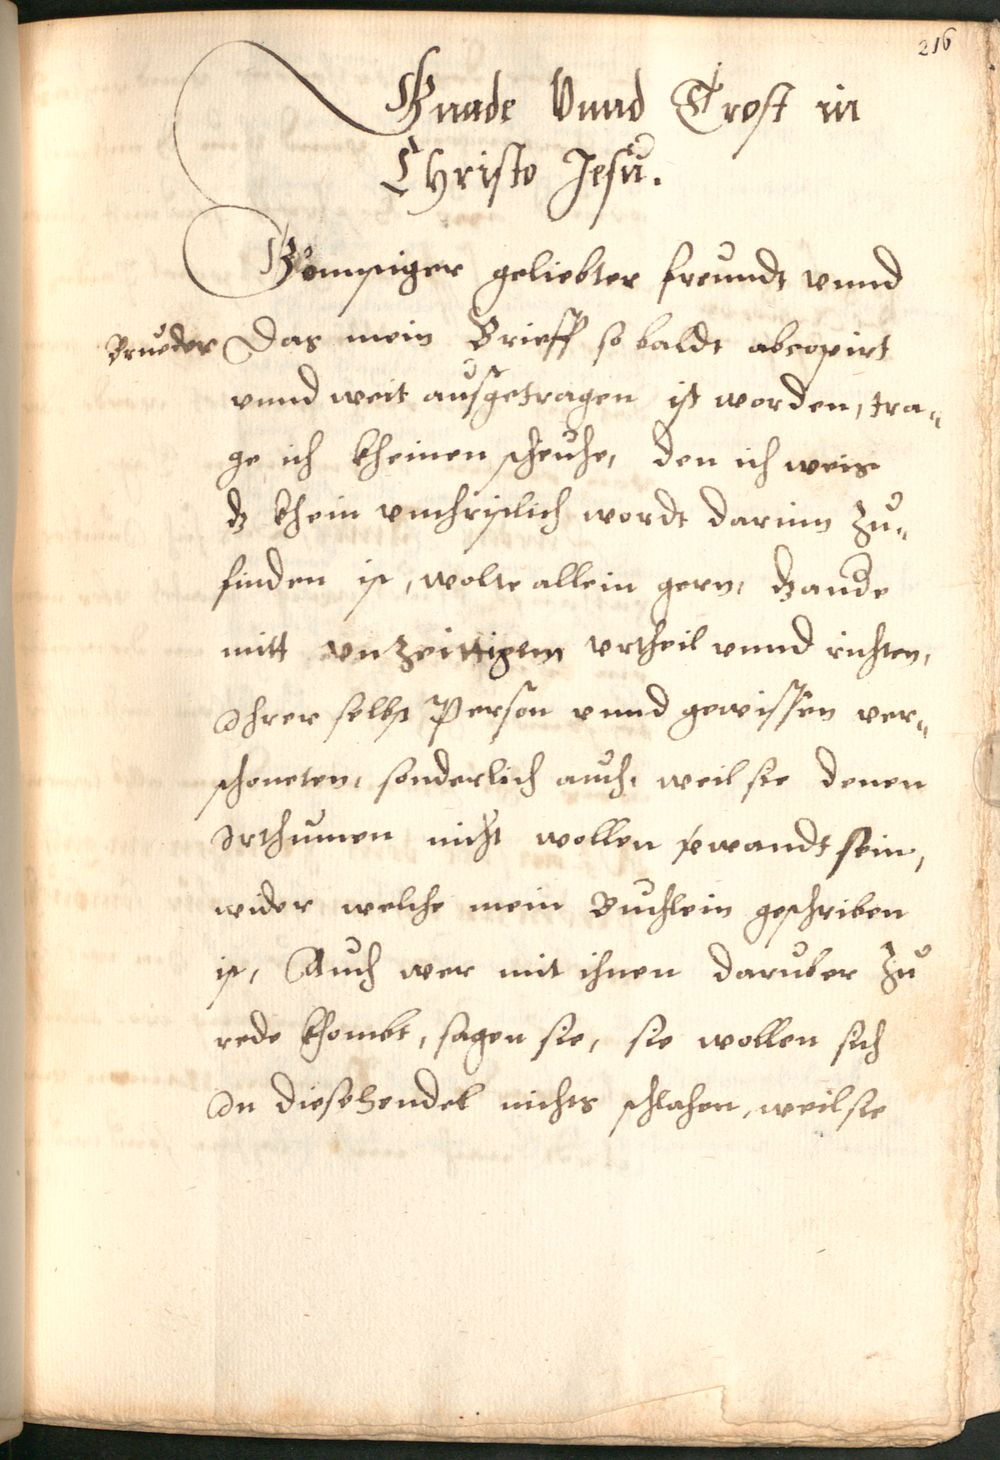 216
Gnade Vnnd Trost in
Christo Jesu.
Gönnstiger geliebter freundt vnnd
Brueder Das mein Brieff so baldt abcopirt
vnnd weit ausgetragen ist worden, tra„
ge ich kheinen scheuhe, den ich weis
dz khein vnchristlich wordt darinn Zu„
finden ist, wolte allein gern, dz
mitt vnzeittigem vrtheil vnnd richten,
Ihrer selbst Person vnnd gewissen ver„
schoneten, sonderlich auch, weil sie denen
Irthumen nicht wollen sein,
wider welche mein Buchlein geschriben
ist, Auch wer mit ihnen daruber Zu
rede khombt, sagen sie, sie wollen sich
In diese hendel nichts schlahen, weil sie